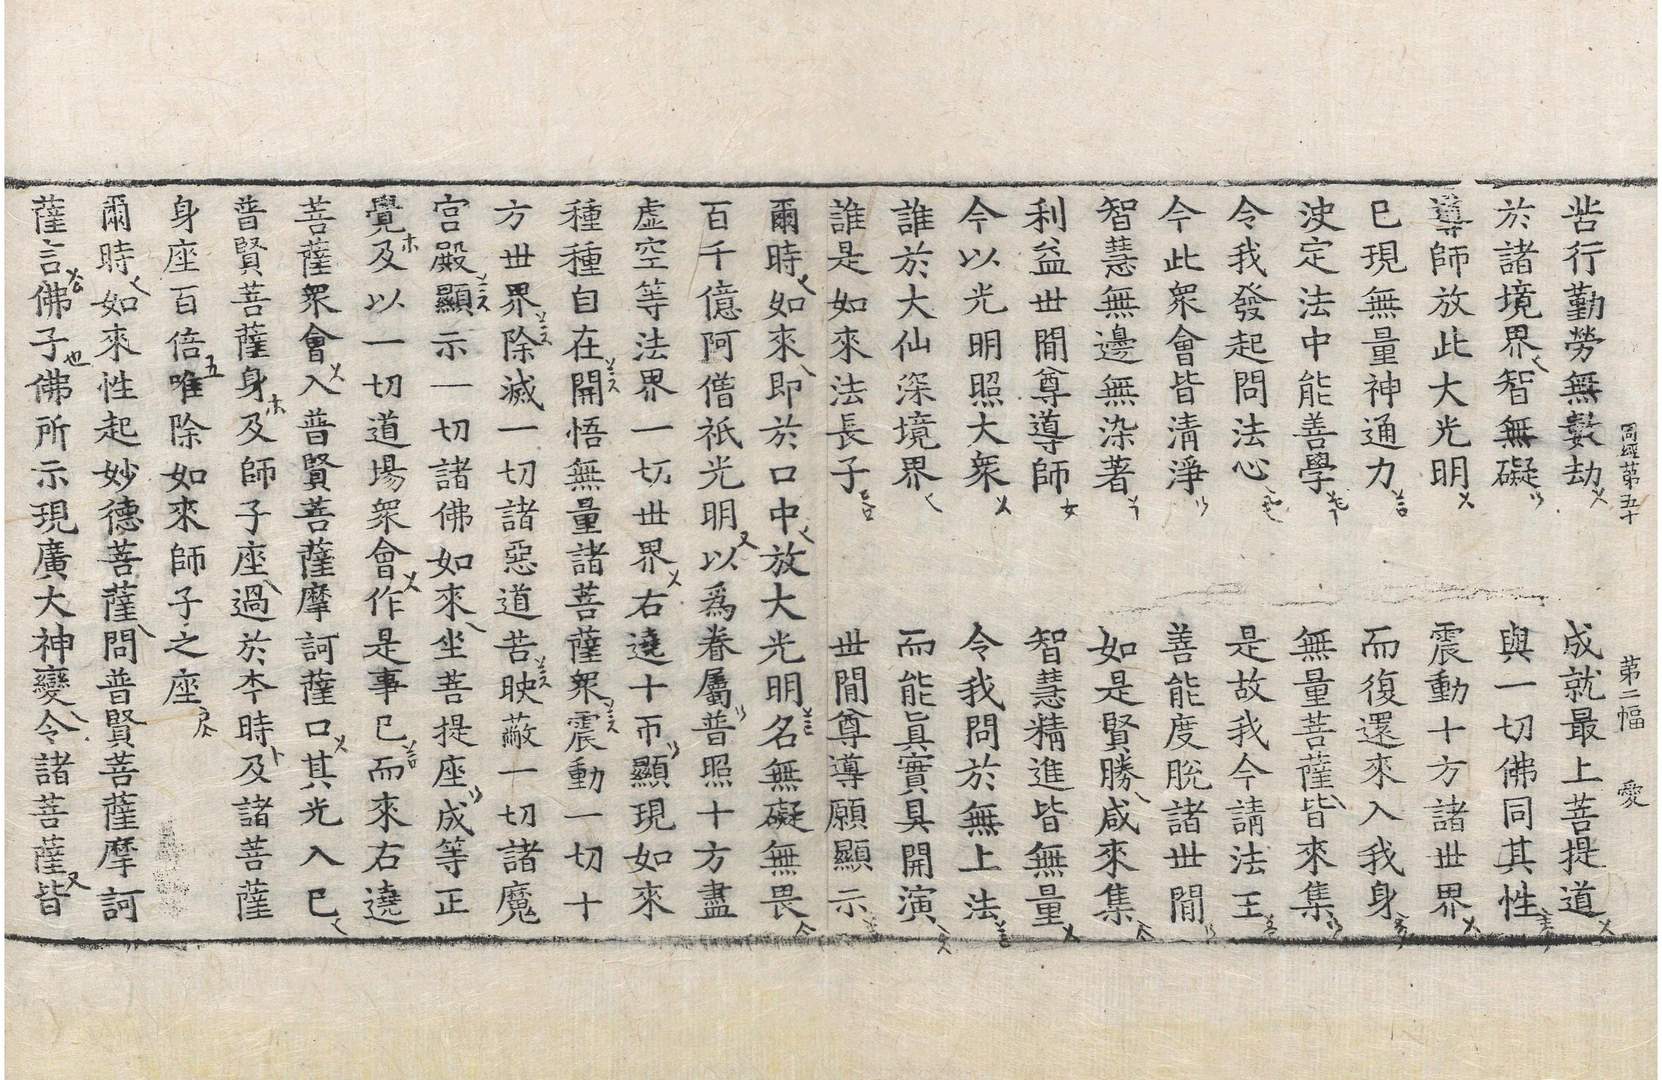 同經第五十　第二幅　愛
苦行勤勞無數劫　成就最上菩提道
於諸境界智無礙　與一切佛同其性
導師放此大光明　震動十方諸世界
已現無量神通力　而復還來入我身
決定法中能善學　無量菩薩皆來集
令我發起問法心　是故我今請法王
今此衆會皆清淨　善能度脫諸世間
智慧無邊無染著　如是賢勝咸來集
利益世間尊導師　智慧精進皆無量
今以光明照大衆　令我問於無上法
誰於大仙深境界　而能眞實具開演
誰是如來法長子　世間尊導願顯示
爾時如來即於口中放大光明名無礙無畏
百千億阿僧祇光明以爲眷屬普照十方盡
虛空等法界一切世界右遶十帀顯現如來
種種自在開悟無量諸菩薩衆震動一切十
方世界除滅一切諸惡道苦映蔽一切諸魔
宮殿顯示一切諸佛如來坐菩提座成等正
覺及以一切道場衆會作是事已而來右遶
菩薩衆會入普賢菩薩摩訶薩口其光入已
普賢菩薩身及師子座過於本時及諸菩薩
身座百倍唯除如來師子之座
爾時如來性起妙德菩薩問普賢菩薩摩訶
薩言佛子佛所示現廣大神變令諸菩薩皆